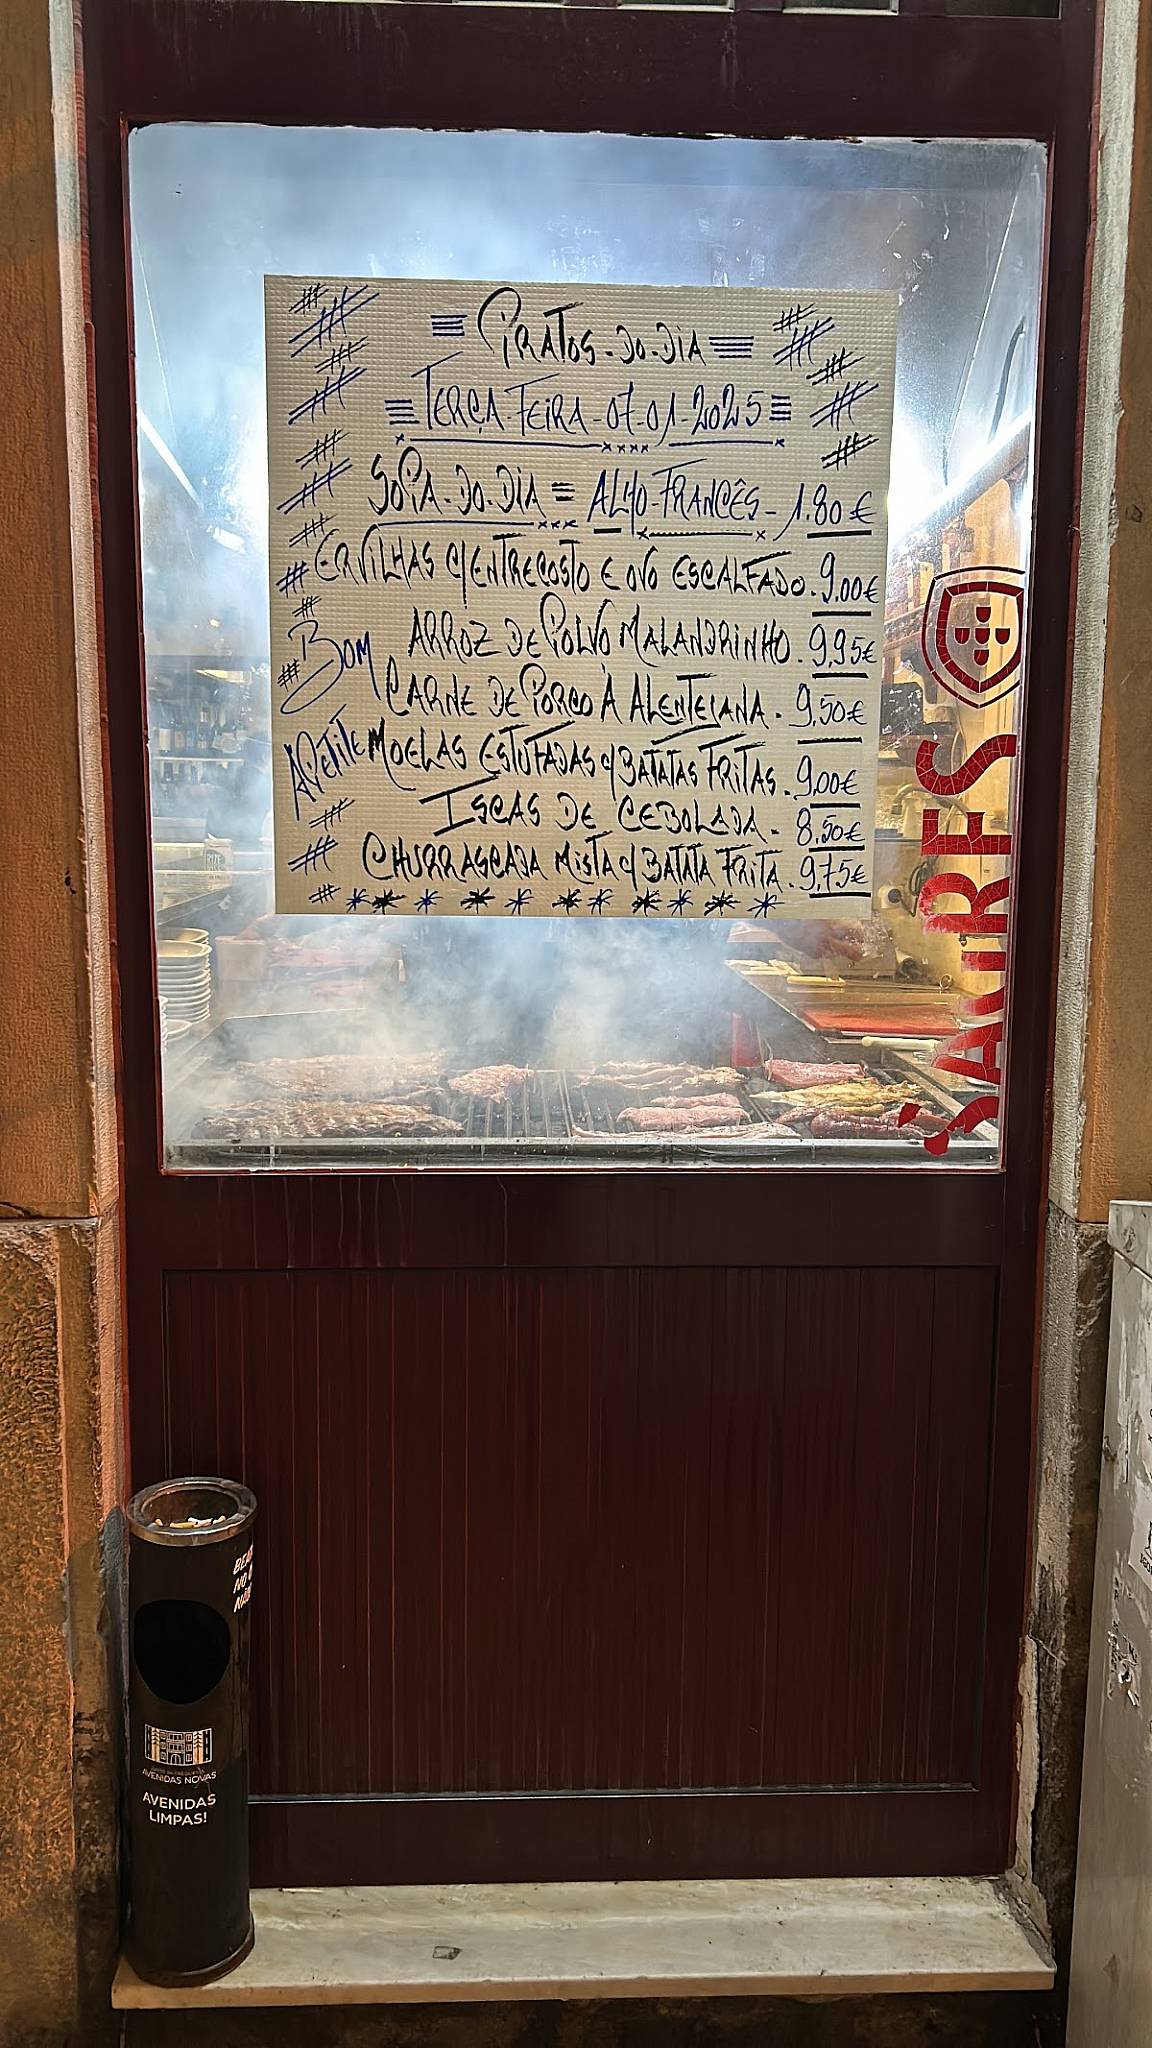 PRATOS-DO-DIA
TERÇA-FEIRA-07-01-2025
SOPA-DO-DIA = ALHO-FRANCÊS-1.80€
ERVILHAS C/ENTRECOSTO E OVO ESCALFADO.9,00€
ARROZ DE POLVO MALANDRINHO.9,95€
CARNE DE PORCO À ALENTEJANA.9,50€
MOELAS ESTUFADAS C/BATATAS FRITAS.9,00€
ISCAS DE CEBOLADA.8,50€
CHURRASCADA MISTA C/BATATA FRITA.9,75€
BOM
APETITE
SAURES
AVENIDAS NOVAS
AVENIDAS
LIMPAS!